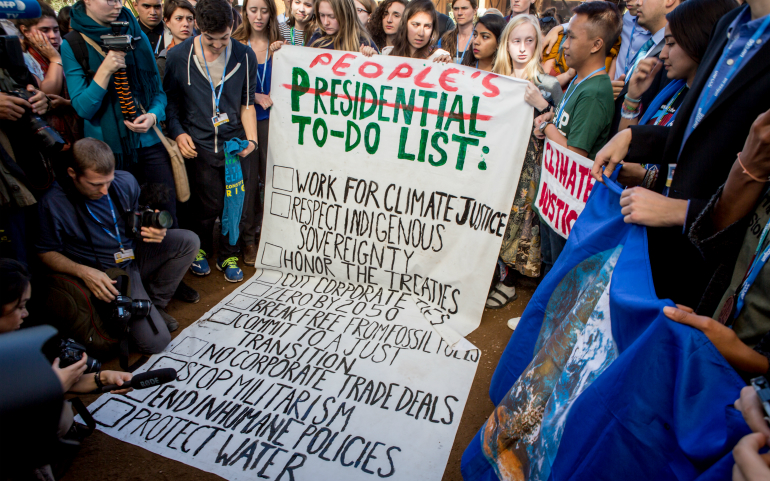 PEOPLE'S
PRESIDENTIAL
TO-DO LIST:
WORK FOR CLIMATE JUSTICE
RESPECT INDIGENOUS
SOVEREIGNTY
HONOR THE TREATIES
CUT CORPORATE
ZERO BY 2050
BREAK FREE FROM FOSSIL FUELS
COMMIT TO A JUST
TRANSITION
NO CORPORATE TRADE DEALS
STOP MILITARISM
END INHUMANE POLICIES
PROTECT WATER
CLIMATE
JUSTICE
RODE